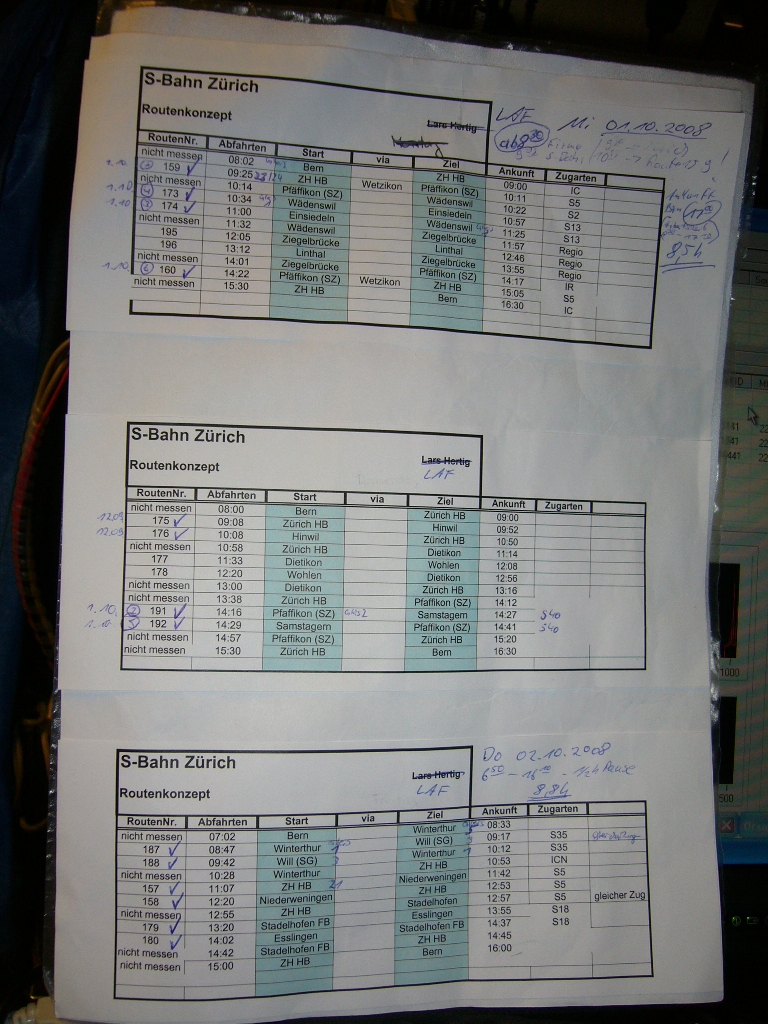 S-Bahn Zürich
Routenkonzept
Lars Hertig
LAF Mi 01.10.2008
RoutenNr. Abfahrten Start via Ziel Ankunft Zugarten
nicht messen 08:02 Bern ZH HB 09:00 IC
1.10. 159 ✓ 09:25 ZH HB Wetzikon Pfäffikon (SZ) 10:11 S5
nicht messen 10:14 Pfäffikon (SZ) Wädenswil 10:22 S2
1.10. 4 173 ✓ 10:34 Wädenswil Einsiedeln 10:57 S13
1.10. 3 174 ✓ 11:00 Einsiedeln Wädenswil 11:25 S13
nicht messen 11:32 Wädenswil Ziegelbrücke 11:57 Regio
195 12:05 Ziegelbrücke Linthal 12:46 Regio
196 13:12 Linthal Ziegelbrücke 13:55 Regio
nicht messen 14:01 Ziegelbrücke Pfäffikon (SZ) 14:17 IR
1.10. 6 160 ✓ 14:22 Pfäffikon (SZ) Wetzikon ZH HB 15:05 S5
nicht messen 15:30 ZH HB Bern 16:30 IC
8,5h
S-Bahn Zürich
Routenkonzept
Lars Hertig
LAF
RoutenNr. Abfahrten Start via Ziel Ankunft Zugarten
nicht messen 08:00 Bern Zürich HB 09:00
12.09. 175 ✓ 09:08 Zürich HB Hinwil 09:52
12.09. 176 ✓ 10:08 Hinwil Zürich HB 10:50
nicht messen 10:58 Zürich HB Dietikon 11:14
177 11:33 Dietikon Wohlen 12:08
178 12:20 Wohlen Dietikon 12:56
nicht messen 13:00 Dietikon Zürich HB 13:16
nicht messen 13:38 Zürich HB Pfaffikon (SZ) 14:12
1.10. 2 191 ✓ 14:16 Pfaffikon (SZ) Samstagern 14:27 S40
1.10. 5 192 ✓ 14:29 Samstagern Pfaffikon (SZ) 14:41 S40
nicht messen 14:57 Pfaffikon (SZ) Zürich HB 15:20
nicht messen 15:30 Zürich HB Bern 16:30
S-Bahn Zürich
Routenkonzept
Lars Hertig
LAF
Do 02.10.2008
6 50 - 16 10 - 1/2 h Pause
8,8h
RoutenNr. Abfahrten Start via Ziel Ankunft Zugarten
nicht messen 07:02 Bern Winterthur 08:33
187 ✓ 08:47 Winterthur Will (SG) 09:17 S35
188 ✓ 09:42 Will (SG) Winterthur 10:12 S35
nicht messen 10:28 Winterthur ZH HB 10:53 ICN
157 ✓ 11:07 ZH HB Niederweningen 11:42 S5
158 ✓ 12:20 Niederweningen ZH HB 12:53 S5
nicht messen 12:55 ZH HB Stadelhofen 12:57 S5 gleicher Zug
179 ✓ 13:20 Stadelhofen FB Esslingen 13:55 S18
180 ✓ 14:02 Esslingen Stadelhofen FB 14:37 S18
nicht messen 14:42 Stadelhofen FB ZH HB 14:45
nicht messen 15:00 ZH HB Bern 16:00
1000
500